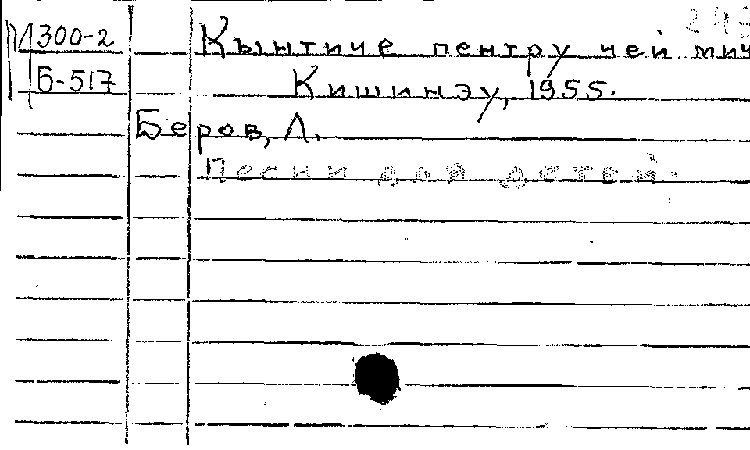 М300-2
Б-517
Кынтиче пентру чей мич
Кишинэу, 1955.
Беров, Л.
Песни для детей.